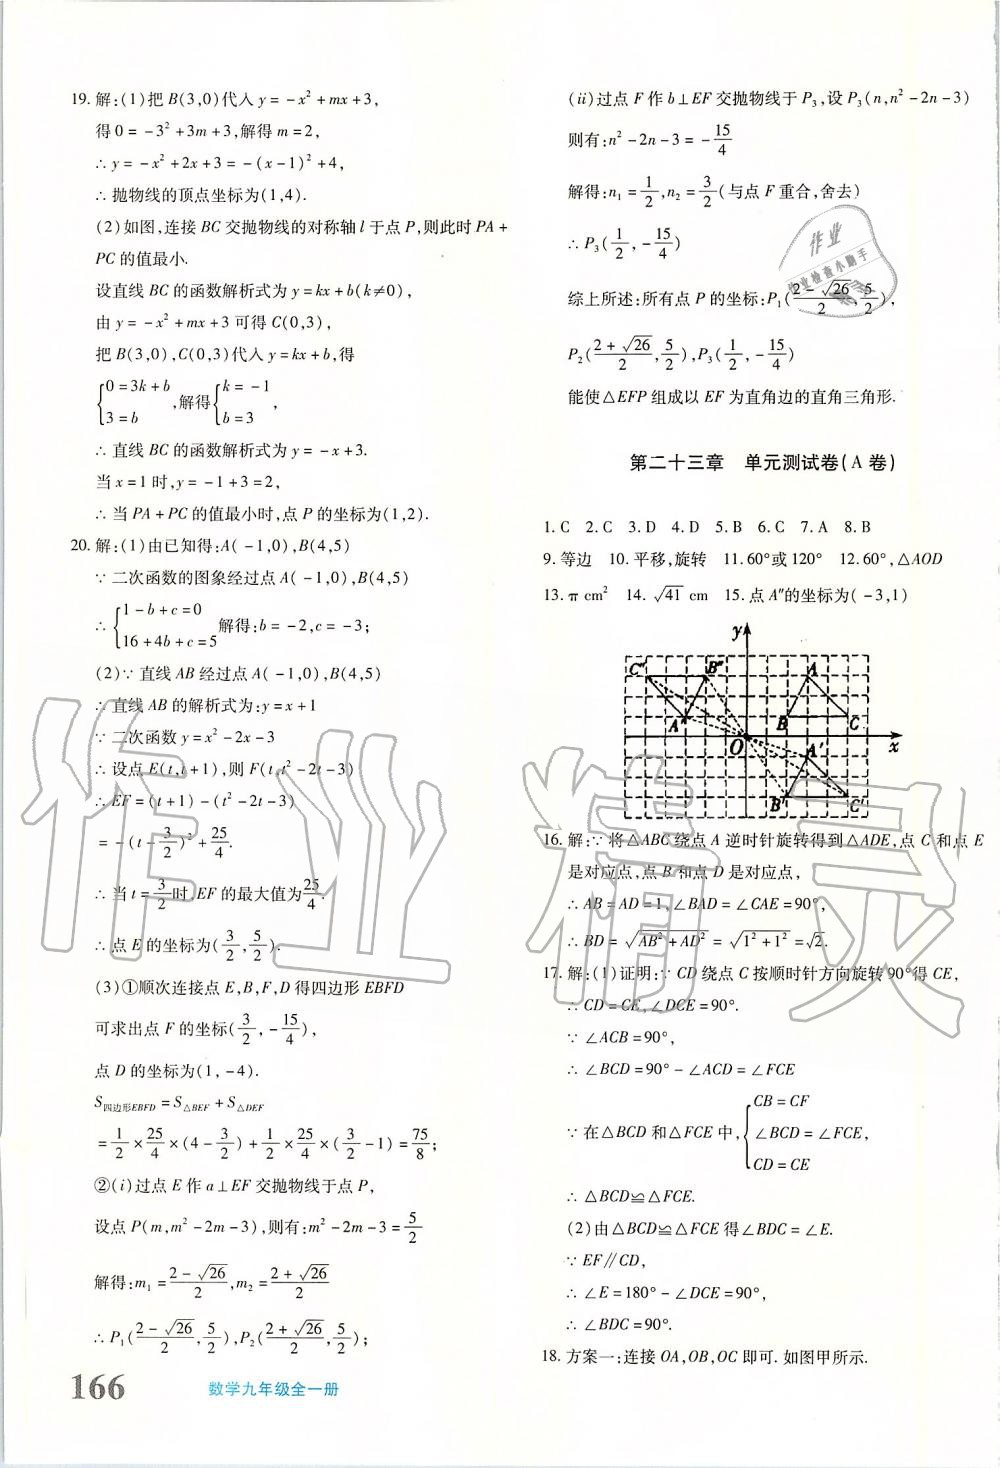 19. 解:(1)把 B(3,0)代入 y = -x² + mx + 3,
得 0 = -3² + 3m + 3,解得 m = 2,
∴ y = -x² + 2x + 3 = -(x-1)² + 4,
∴ 抛物线的顶点坐标为(1,4).
(2)如图,连接 BC 交抛物线的对称轴 l 于点 P,则此时 PA +
PC 的值最小.
设直线 BC 的函数解析式为 y = kx + b(k≠0),
由 y = -x² + mx + 3 可得 C(0,3),
把 B(3,0),C(0,3)代入 y = kx + b,得
{0 = 3k + b 3 = b ,解得{k = -1 b = 3 ,
∴ 直线 BC 的函数解析式为 y = -x + 3.
当 x = 1 时,y = -1 + 3 = 2,
∴ 当 PA + PC 的值最小时,点 P 的坐标为(1,2).
20. 解:(1)由已知得:A(-1,0),B(4,5)
∵ 二次函数的图象经过点 A(-1,0),B(4,5)
∴ {1 - b + c = 0 16 + 4b + c = 5 解得:b = -2,c = -3;
(2)∵ 直线 AB 经过点 A(-1,0),B(4,5)
∴ 直线 AB 的解析式为:y = x + 1
∵ 二次函数 y = x² - 2x - 3
∴ 设点 E(t,t+1),则 F(t,t² - 2t - 3)
∴ EF = (t+1) - (t² - 2t - 3)
= -(t - 3/2)² + 25/4.
∴ 当 t = 3/2 时,EF 的最大值为 25/4.
∴ 点 E 的坐标为(3/2, 5/2).
(3)①顺次连接点 E,B,F,D 得四边形 EBFD
可求出点 F 的坐标(3/2, -15/4),
点 D 的坐标为(1,-4).
S四边形EBFD = S△BEF + S△DEF
= 1/2 × 25/4 × (4 - 3/2) + 1/2 × 25/4 × (3/2 - 1) = 75/8;
②(i)过点 E 作 a⊥EF 交抛物线于点 P,
设点 P(m,m² - 2m - 3),则有:m² - 2m - 3 = 5/2
解得:m₁ = (2 - √26)/2, m₂ = (2 + √26)/2
∴ P₁((2 - √26)/2, 5/2), P₂((2 + √26)/2, 5/2);
166 数学九年级全一册
(ii)过点 F 作 b⊥EF 交抛物线于 P₃,设 P₃(n,n² - 2n - 3)
则有:n² - 2n - 3 = -15/4
解得:n₁ = 1/2, n₂ = 3/2(与点 F 重合,舍去)
∴ P₃(1/2, -15/4)
综上所述:所有点 P 的坐标:P₁((2 - √26)/2, 5/2),
P₂((2 + √26)/2, 5/2), P₃(1/2, -15/4)
能使△EFP 组成以 EF 为直角边的直角三角形.
第二十三章 单元测试卷(A 卷)
1. C 2. C 3. D 4. D 5. B 6. C 7. A 8. B
9. 等边 10. 平移,旋转 11. 60°或 120° 12. 60°,△AOD
13. π cm² 14. √41 cm 15. 点 A″的坐标为(-3,1)
y
C″ B″ A
A″ B C
O x
A′
B′ C′
16. 解:∵ 将△ABC 绕点 A 逆时针旋转得到△ADE,点 C 和点 E
是对应点,点 B 和点 D 是对应点,
∴ AB = AD = 1,∠BAD = ∠CAE = 90°,
∴ BD = √(AB² + AD²) = √(1² + 1²) = √2.
17. 解:(1)证明:∵ CD 绕点 C 按顺时针方向旋转 90°得 CE,
∴ CD = CE,∠DCE = 90°,
∵ ∠ACB = 90°,
∴ ∠BCD = 90° - ∠ACD = ∠FCE
∵ 在△BCD 和△FCE 中,{CB = CF ∠BCD = ∠FCE, CD = CE
∴ △BCD≌△FCE.
(2)由△BCD≌△FCE 得∠BDC = ∠E.
∵ EF∥CD,
∴ ∠E = 180° - ∠DCE = 90°,
∴ ∠BDC = 90°.
18. 方案一:连接 OA,OB,OC 即可. 如图甲所示.
作业
作业检查小助手
作业精灵